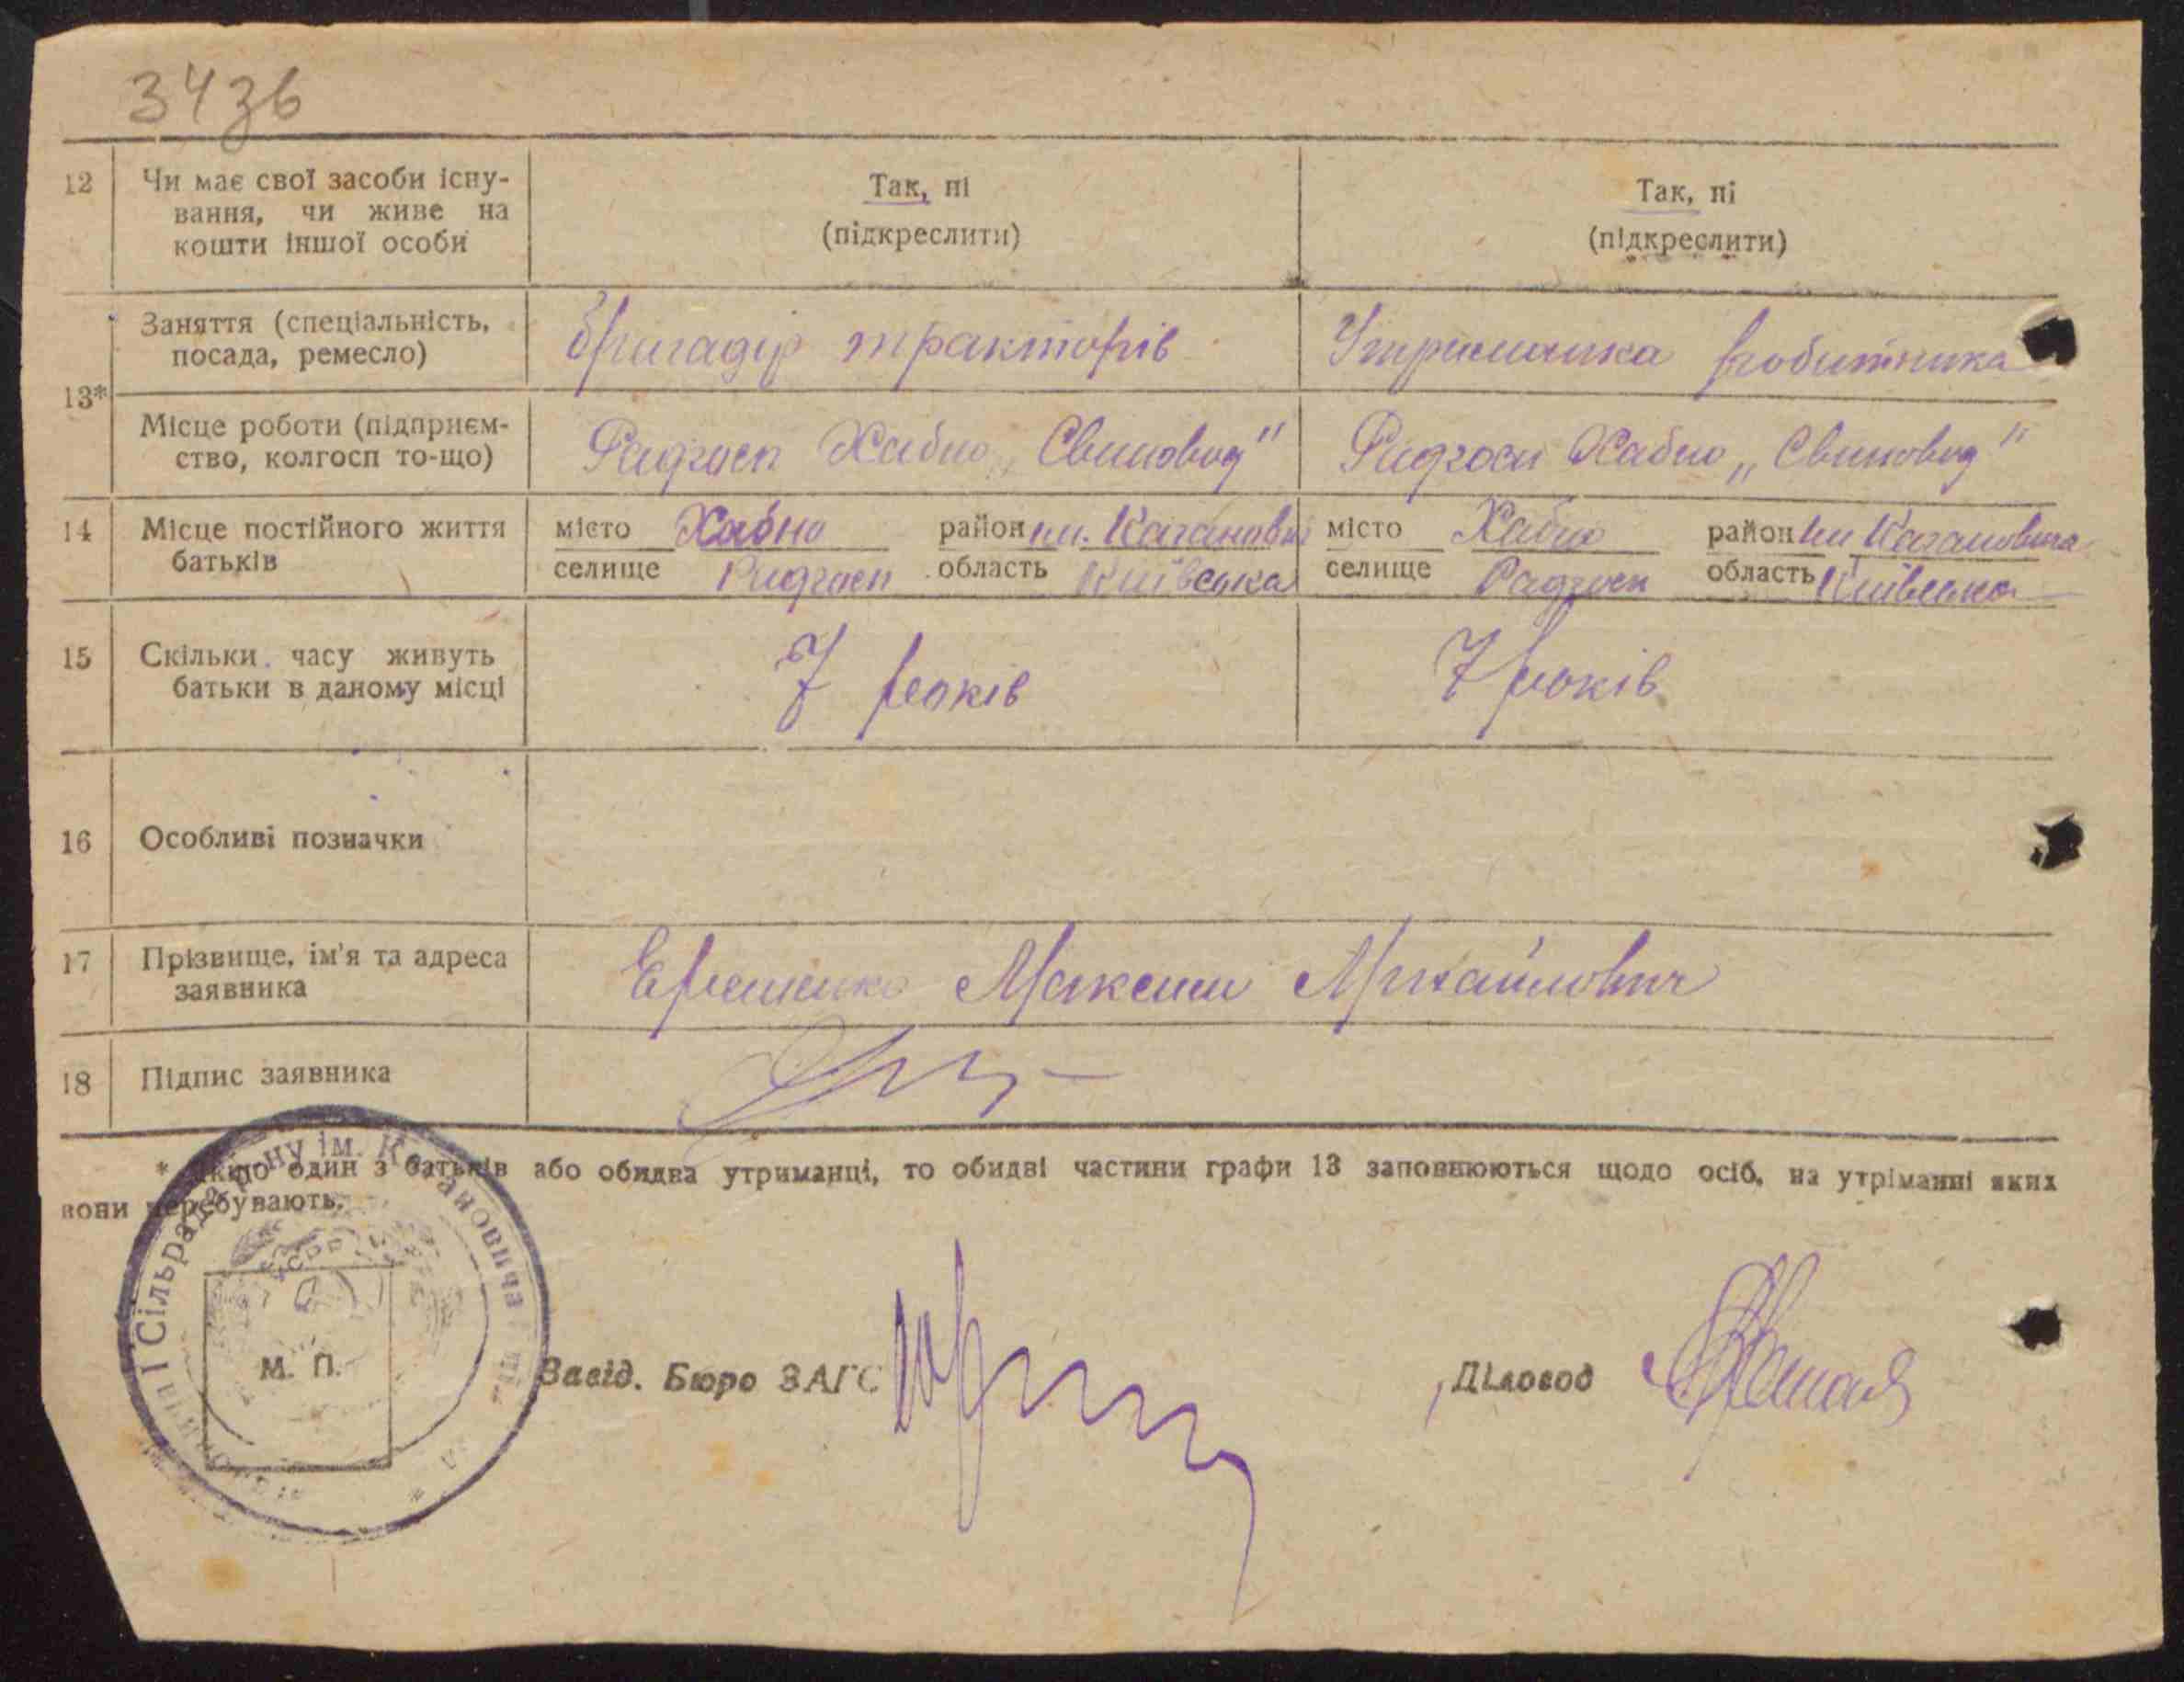 3436
12 Чи має свої засоби існу-
вання, чи живе на
кошти іншої особи
Так, ні
(підкреслити)
Так, ні
(підкреслити)
13*
Заняття (спеціальність,
посада, ремесло)
бригадір тракторів
Утриманка робитника
Місце роботи (підприєм-
ство, колгосп то-що)
Радгосп Хабно „Свиновод"
Радгосп Хабно „Свиновод"
14 Місце постійного життя
батьків
місто Хабно район им. Каганович
селище Радгосп область Київська
місто Хабно район им Кагановича
селище Радгосп область Київська
15 Скільки часу живуть
батьки в даному місці
7 років
7 років
16 Особливі позначки
17 Прізвище, ім'я та адреса
заявника
Максим Михайлович
18 Підпис заявника
* Якщо один з батьків або обидва утриманці, то обидві частини графи 13 заповнюються щодо осіб, на утріманні яких
вони перебувають.
Сільрада району ім. Кагановича
УСРР
М. П.
Завід. Бюро ЗАГС
Діловод